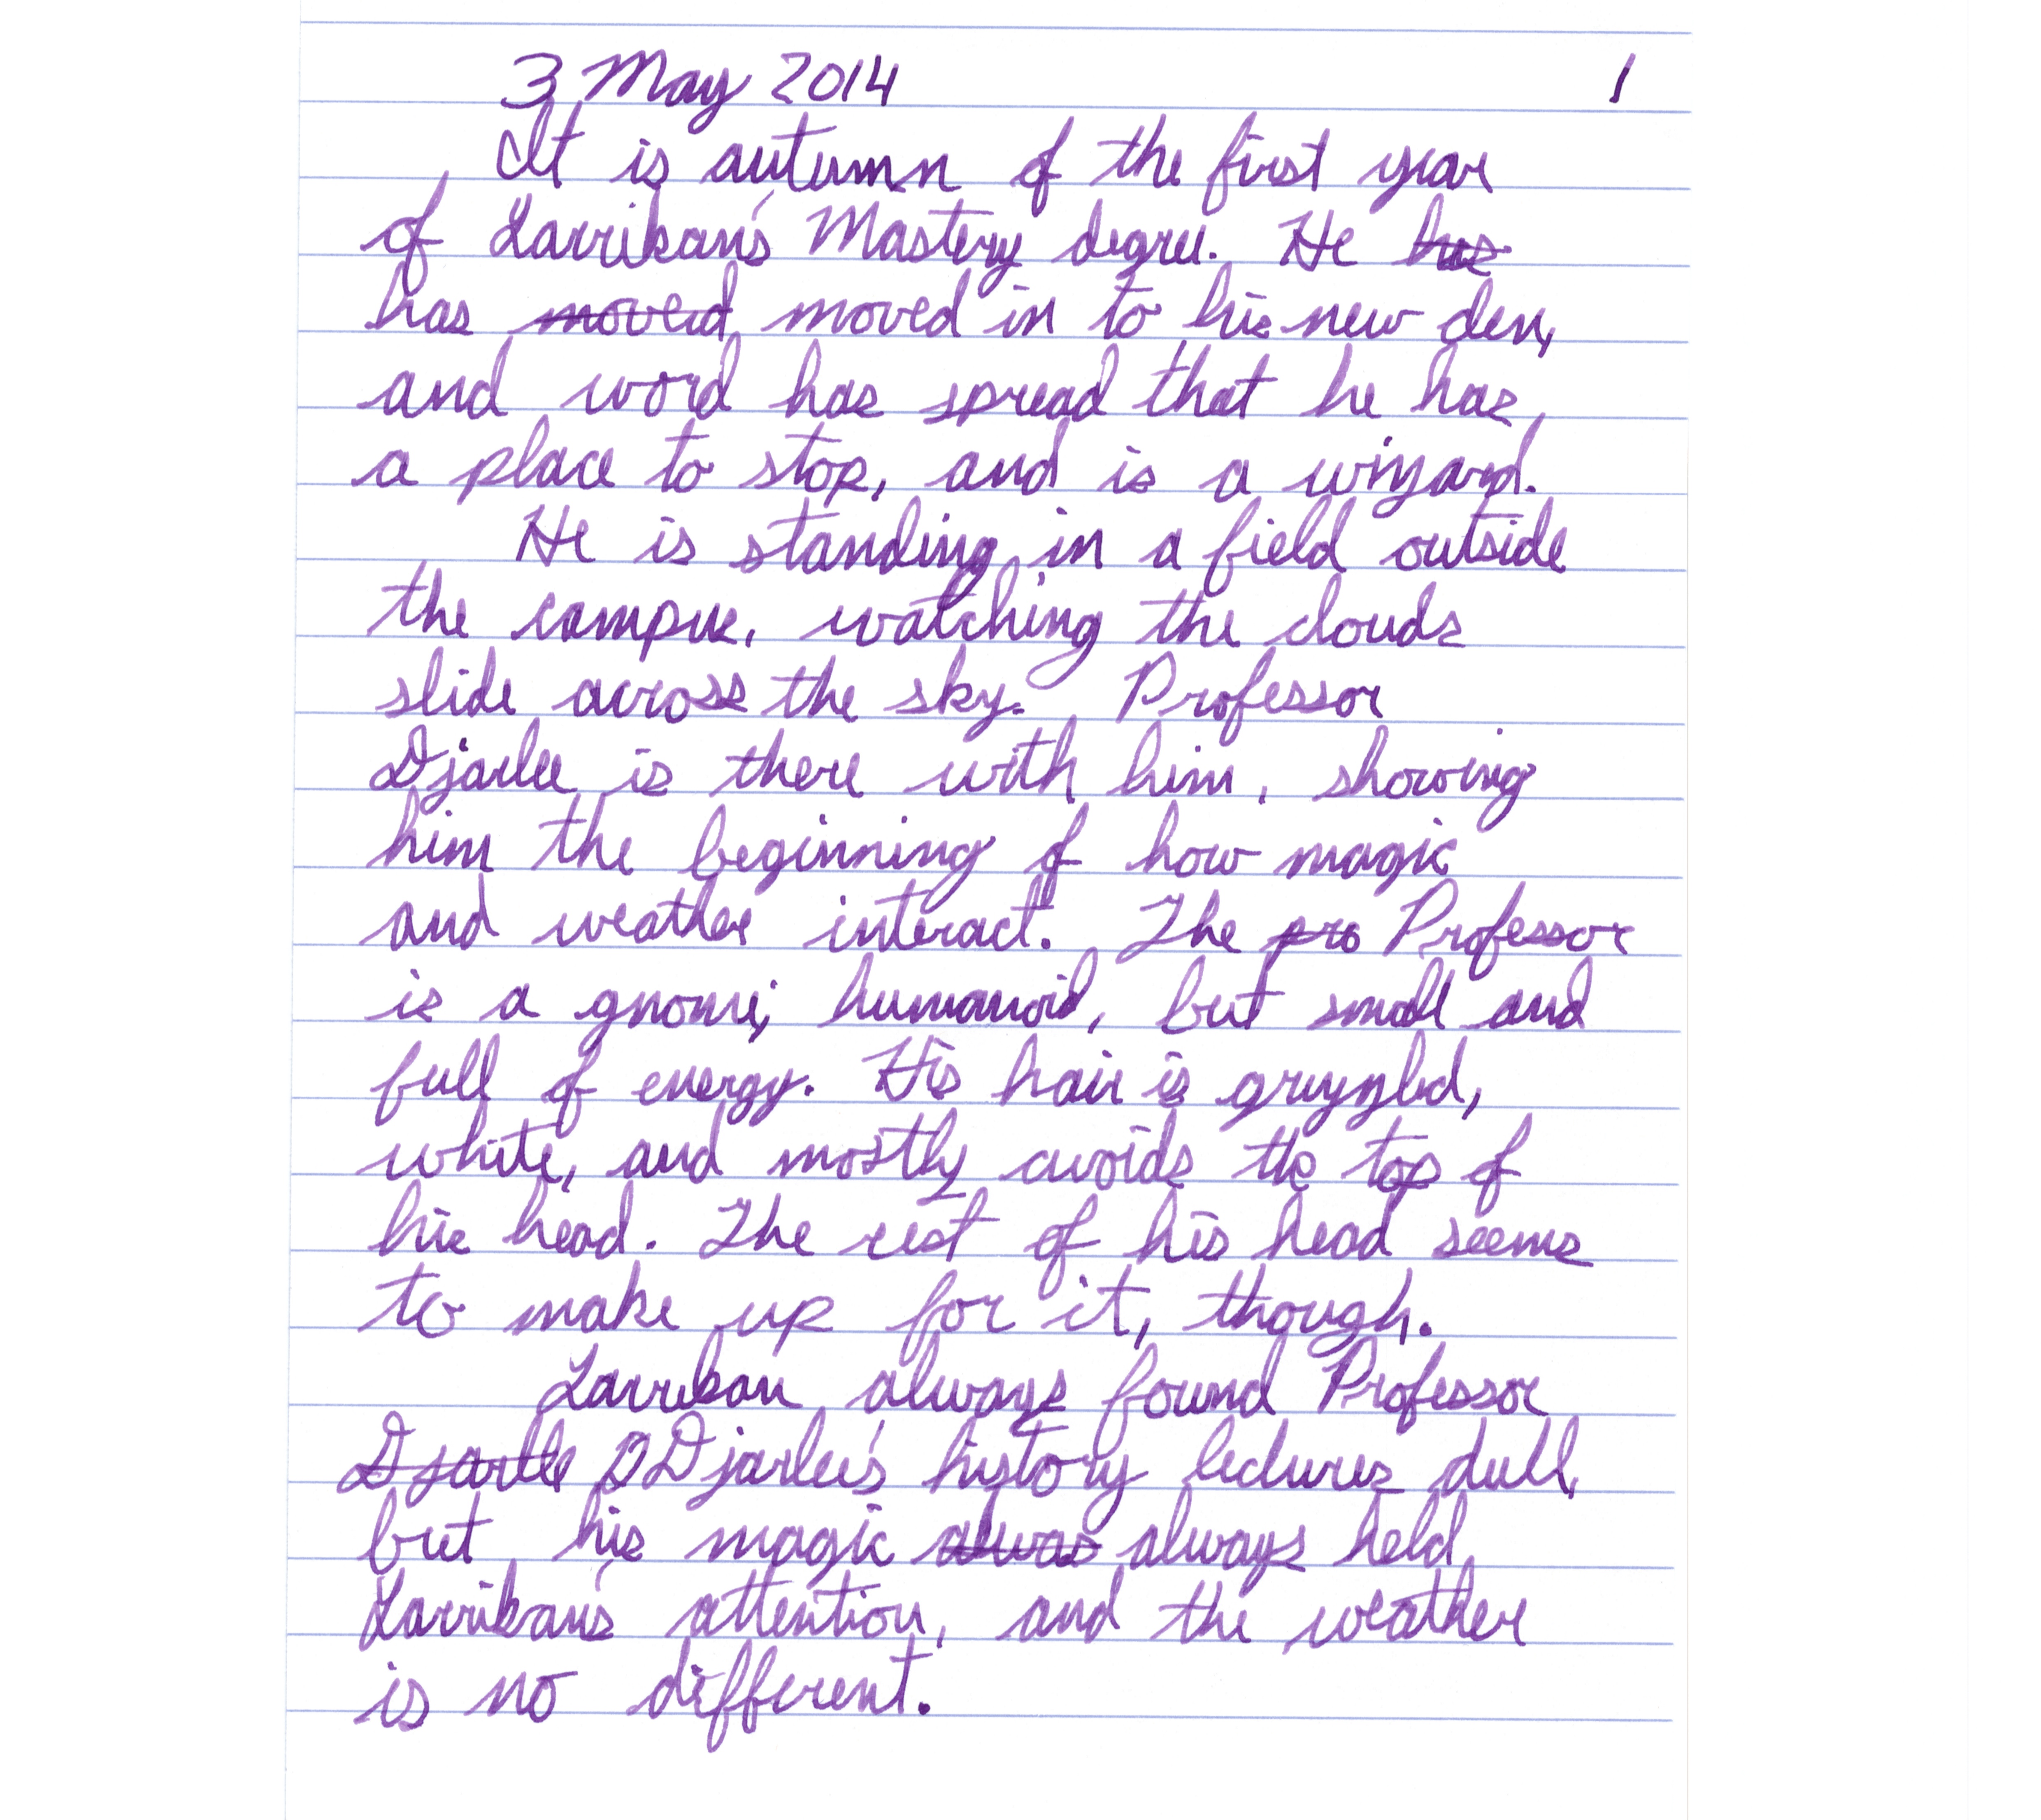 3 May 2014 1
It is autumn of the first year
of Larrikan's Mastery degree. He has
has moved moved in to his new den,
and word has spread that he has
a place to stop, and is a wizard.
He is standing in a field outside
the campus, watching the clouds
slide across the sky. Professor
Djarlee is there with him, showing
him the beginning of how magic
and weather interact. The pro Professor
is a gnome; humanoid, but small and
full of energy. His hair is gryzled,
white, and mostly avoids the top of
his head. The rest of his head seems
to make up for it, though.
Larrikan always found Professor
Djarlle DDjarlee's history lectures dull,
but his magic alwas always held
Larrikan's attention, and the weather
is no different.